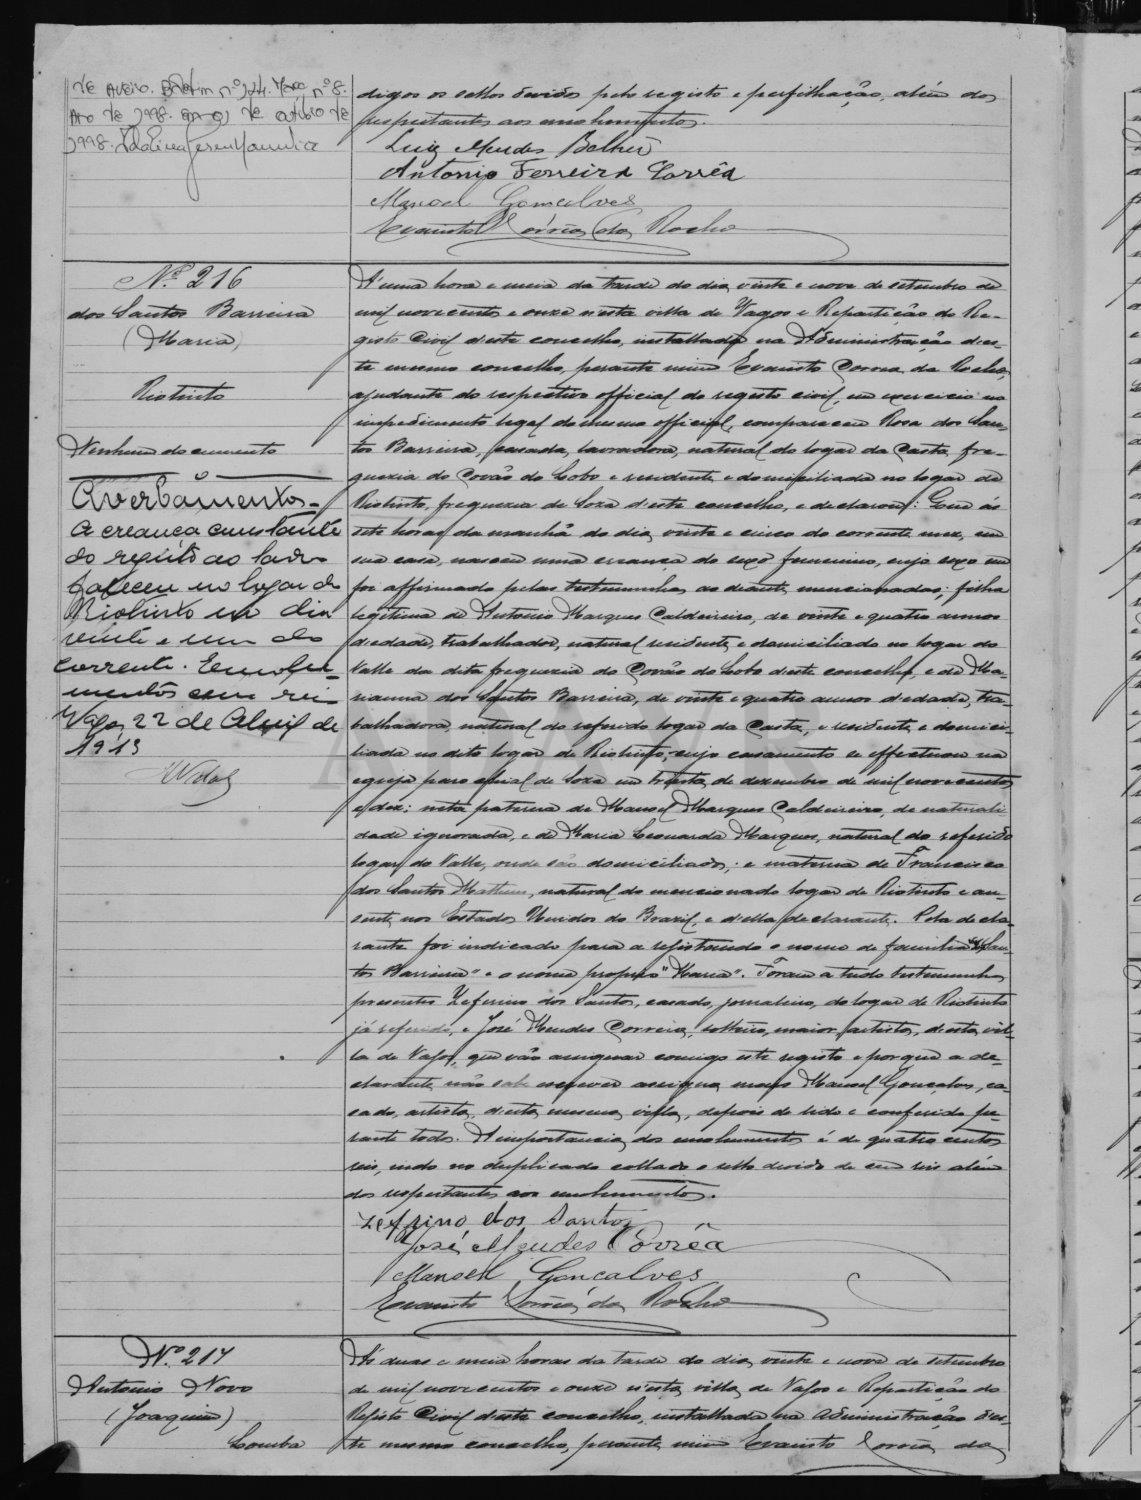 de Aveiro. Boletim nº 124. Maço nº 8.
Ano de 1998. de outubro de
1998.
digos os sellos devidos pelo registo e perfilhação, alem dos
respeitantes aos emolumentos.
Luiz Mendes Belchior
Antonio Ferreira Corrêa
Manoel Gonçalves
Evaristo Corrêa da Rocha
Nº 216
dos Santos Barreira
(Maria)
Riotinto
Nenhum documento
Averbamentos -
A creança constante
do registo ao lado
faleceu no logar de
Riotinto no dia
vinte e um do
corrente. Emolu-
mentos cem reis
Vagos 22 de Abril de
1913
A' uma hora e meia da tarde do dia vinte e nove de setembro de
mil novecentos e onze n'esta villa de Vagos e Repartição do Re-
gisto Civil d'este concelho, installada na Administração d'es-
te mesmo concelho, perante mim Evaristo Correa da Rocha,
ajudante do respectivo official do registo civil, em exercicio no
impedimento legal do mesmo official, compareceu Rosa dos San-
tos Barreira, casada, lavradora, natural do logar da Casta, fre-
guezia do Covão do Lobo e residente e domiciliada no logar de
Riotinto, freguezia de Soza d'este concelho, e declarou: Que ás
sete horas da manhã do dia vinte e cinco do corrente mez, em
sua casa, nasceu uma creança do sexo feminino, cujo sexo me
foi affirmado pelas testemunhas ao deante mencionadas; filha
legitima de Antonio Marques Caldeireiro, de vinte e quatro annos
d'edade, trabalhador, natural residente e domiciliado no logar do
Valle da dita freguezia do Covão do Lobo d'este concelho, e de Ma-
rianna dos Santos Barreira, de vinte e quatro annos d'edade, tra-
balhadora, natural do referido logar da Casta, e residente e domici-
liada no dito logar de Riotinto, cujo casamento se effectuou na
egreja parochial de Soza em trinta de dezembro de mil novecentos
e dez: neta paterna de Manoel Marques Caldeireiro, de naturali-
dade ignorada, e de Maria Leonarda Marques, natural do referido
logar do Valle, onde são domiciliados; e materna de Francisco
dos Santos Matheus, natural do mencionado logar de Riotinto e au-
sente nos Estados Unidos do Brazil, e d'ella declarante. Pela decla-
rante foi indicado para a registanda o nome de familia "dos San-
tos Barreira" e o nome proprio "Maria". Foram a tudo testemunhas
presentes Zeferino dos Santos, casado, jornaleiro, do logar de Riotinto
já referido, e José Mendes Correia, solteiro, maior, artista, d'esta vil-
la de Vagos, que vão assignar comigo este registo e porque a de-
clarante não sabe escrever assigna mais Manoel Gonçalves, ca-
sado, artista, d'esta mesma villa, depois de lido e conferido pe-
rante todos. A importancia dos emolumentos é de quatrocentos
reis, indo no duplicado collado o sello devido de cem reis além
dos respeitantes aos emolumentos.
Zefrino dos Santos
José Mendes Corrêa
Manoel Gonçalves
Evaristo Corrêa da Rocha
Nº 217
Antonio Novo
(Joaquim)
Lomba
A's duas e meia horas da tarde do dia vinte e nove de setembro
de mil novecentos e onze n'esta villa de Vagos e Repartição do
Registo Civil d'este concelho, installada na Administração d'es-
te mesmo concelho, perante mim Evaristo Corrêa da